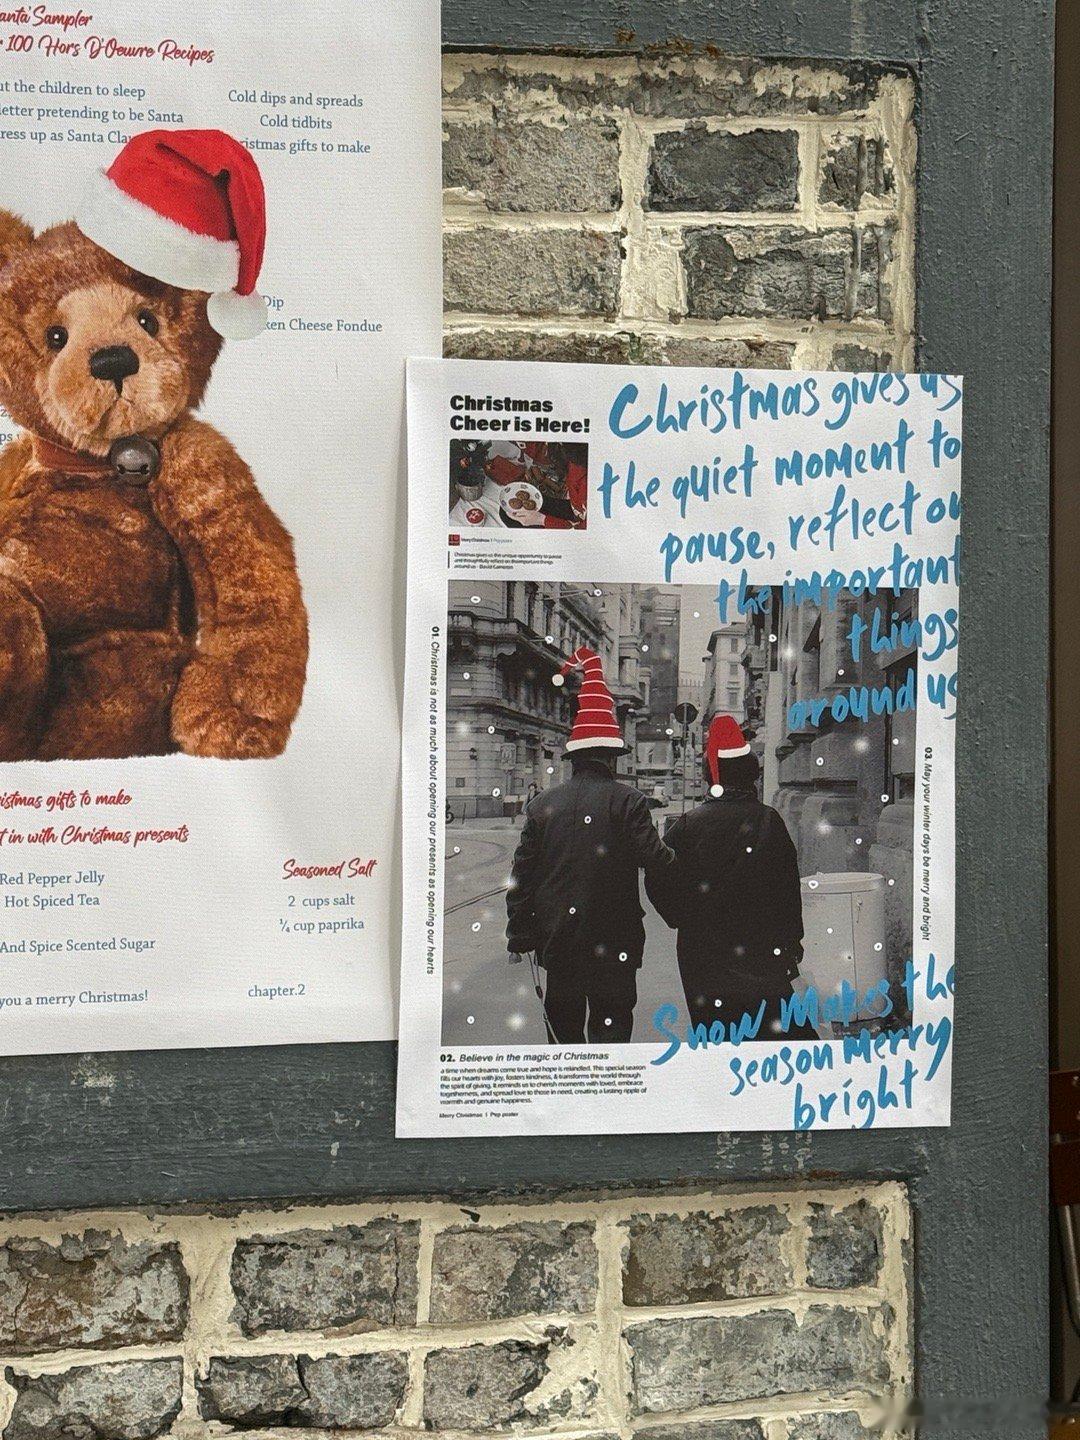 Santa' Sampler
100 Hors D'Oeuvre Recipes
the children to sleep
letter pretending to be Santa
dress up as Santa
Cold dips and spreads
Cold tidbits
gifts to make
Dip
Cheese Fondue
gifts to make
in with Christmas presents
Red Pepper Jelly
Hot Spiced Tea
And Spice Scented Sugar
you a merry Christmas!
Seasoned Salt
2 cups salt
¼ cup paprika
chapter.2
Christmas
Cheer is Here!
Merry Christmas | Pep poster
Christmas gives us the unique opportunity to pause
and thoughtfully reflect on the important things
around us - David Cameron
Christmas gives us
the quiet moment to
pause, reflect on
the important
things
around us
01. Christmas is not as much about opening our presents as opening our hearts
03. May your winter days be merry and bright
Snow makes the
season merry
bright
02. Believe in the magic of Christmas
a time when dreams come true and hope is rekindled. This special season
fills our hearts with joy, fosters kindness, & transforms the world through
the spirit of giving. It reminds us to cherish moments with loved, embrace
togetherness, and spread love to those in need, creating a lasting ripple of
warmth and genuine happiness.
Merry Christmas | Pep poster